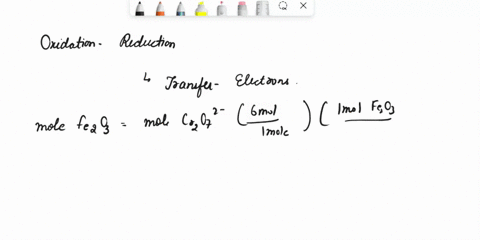 Oxidation- Reduction
↳ Transfer- Electrons.
mole Fe2O3 = mol Cr2O7 2- ( 6mol / 1mole ) ( 1mol Fe2O3